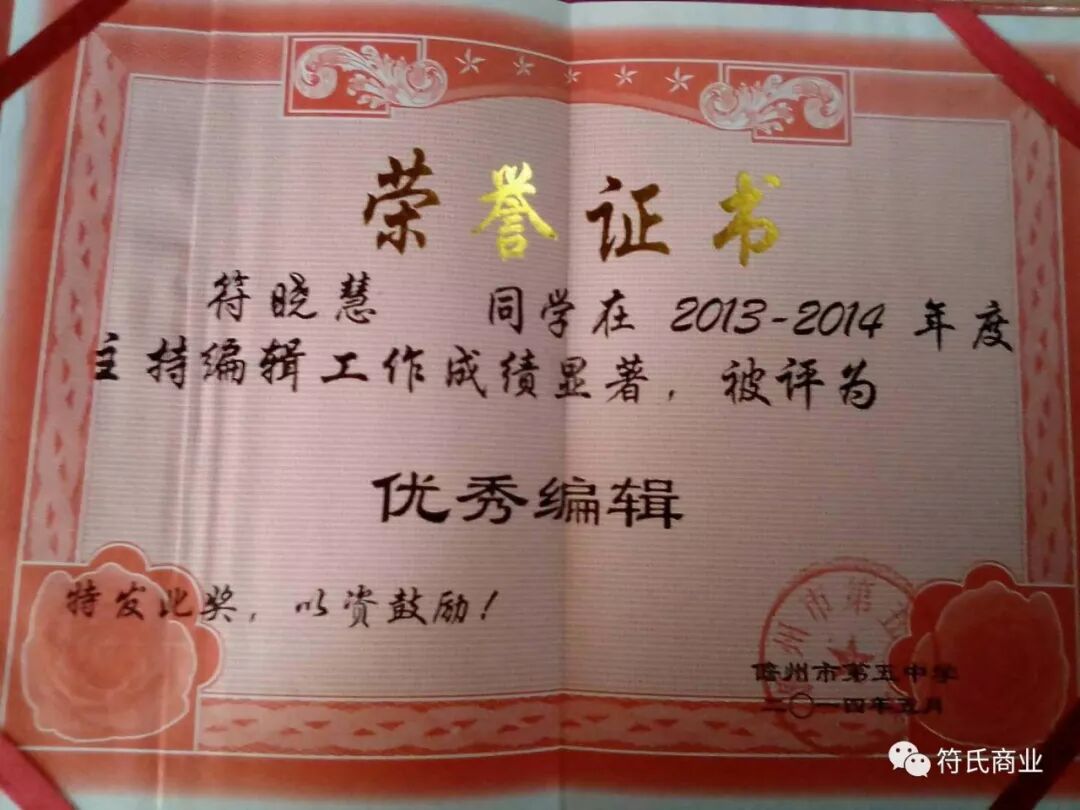 荣誉证书
符晓慧 同学在 2013-2014 年度
主持编辑工作成绩显著，被评为
优秀编辑
特发此奖，以资鼓励！
州市第五
儋州市第五中学
二〇一四年五月
符氏商业